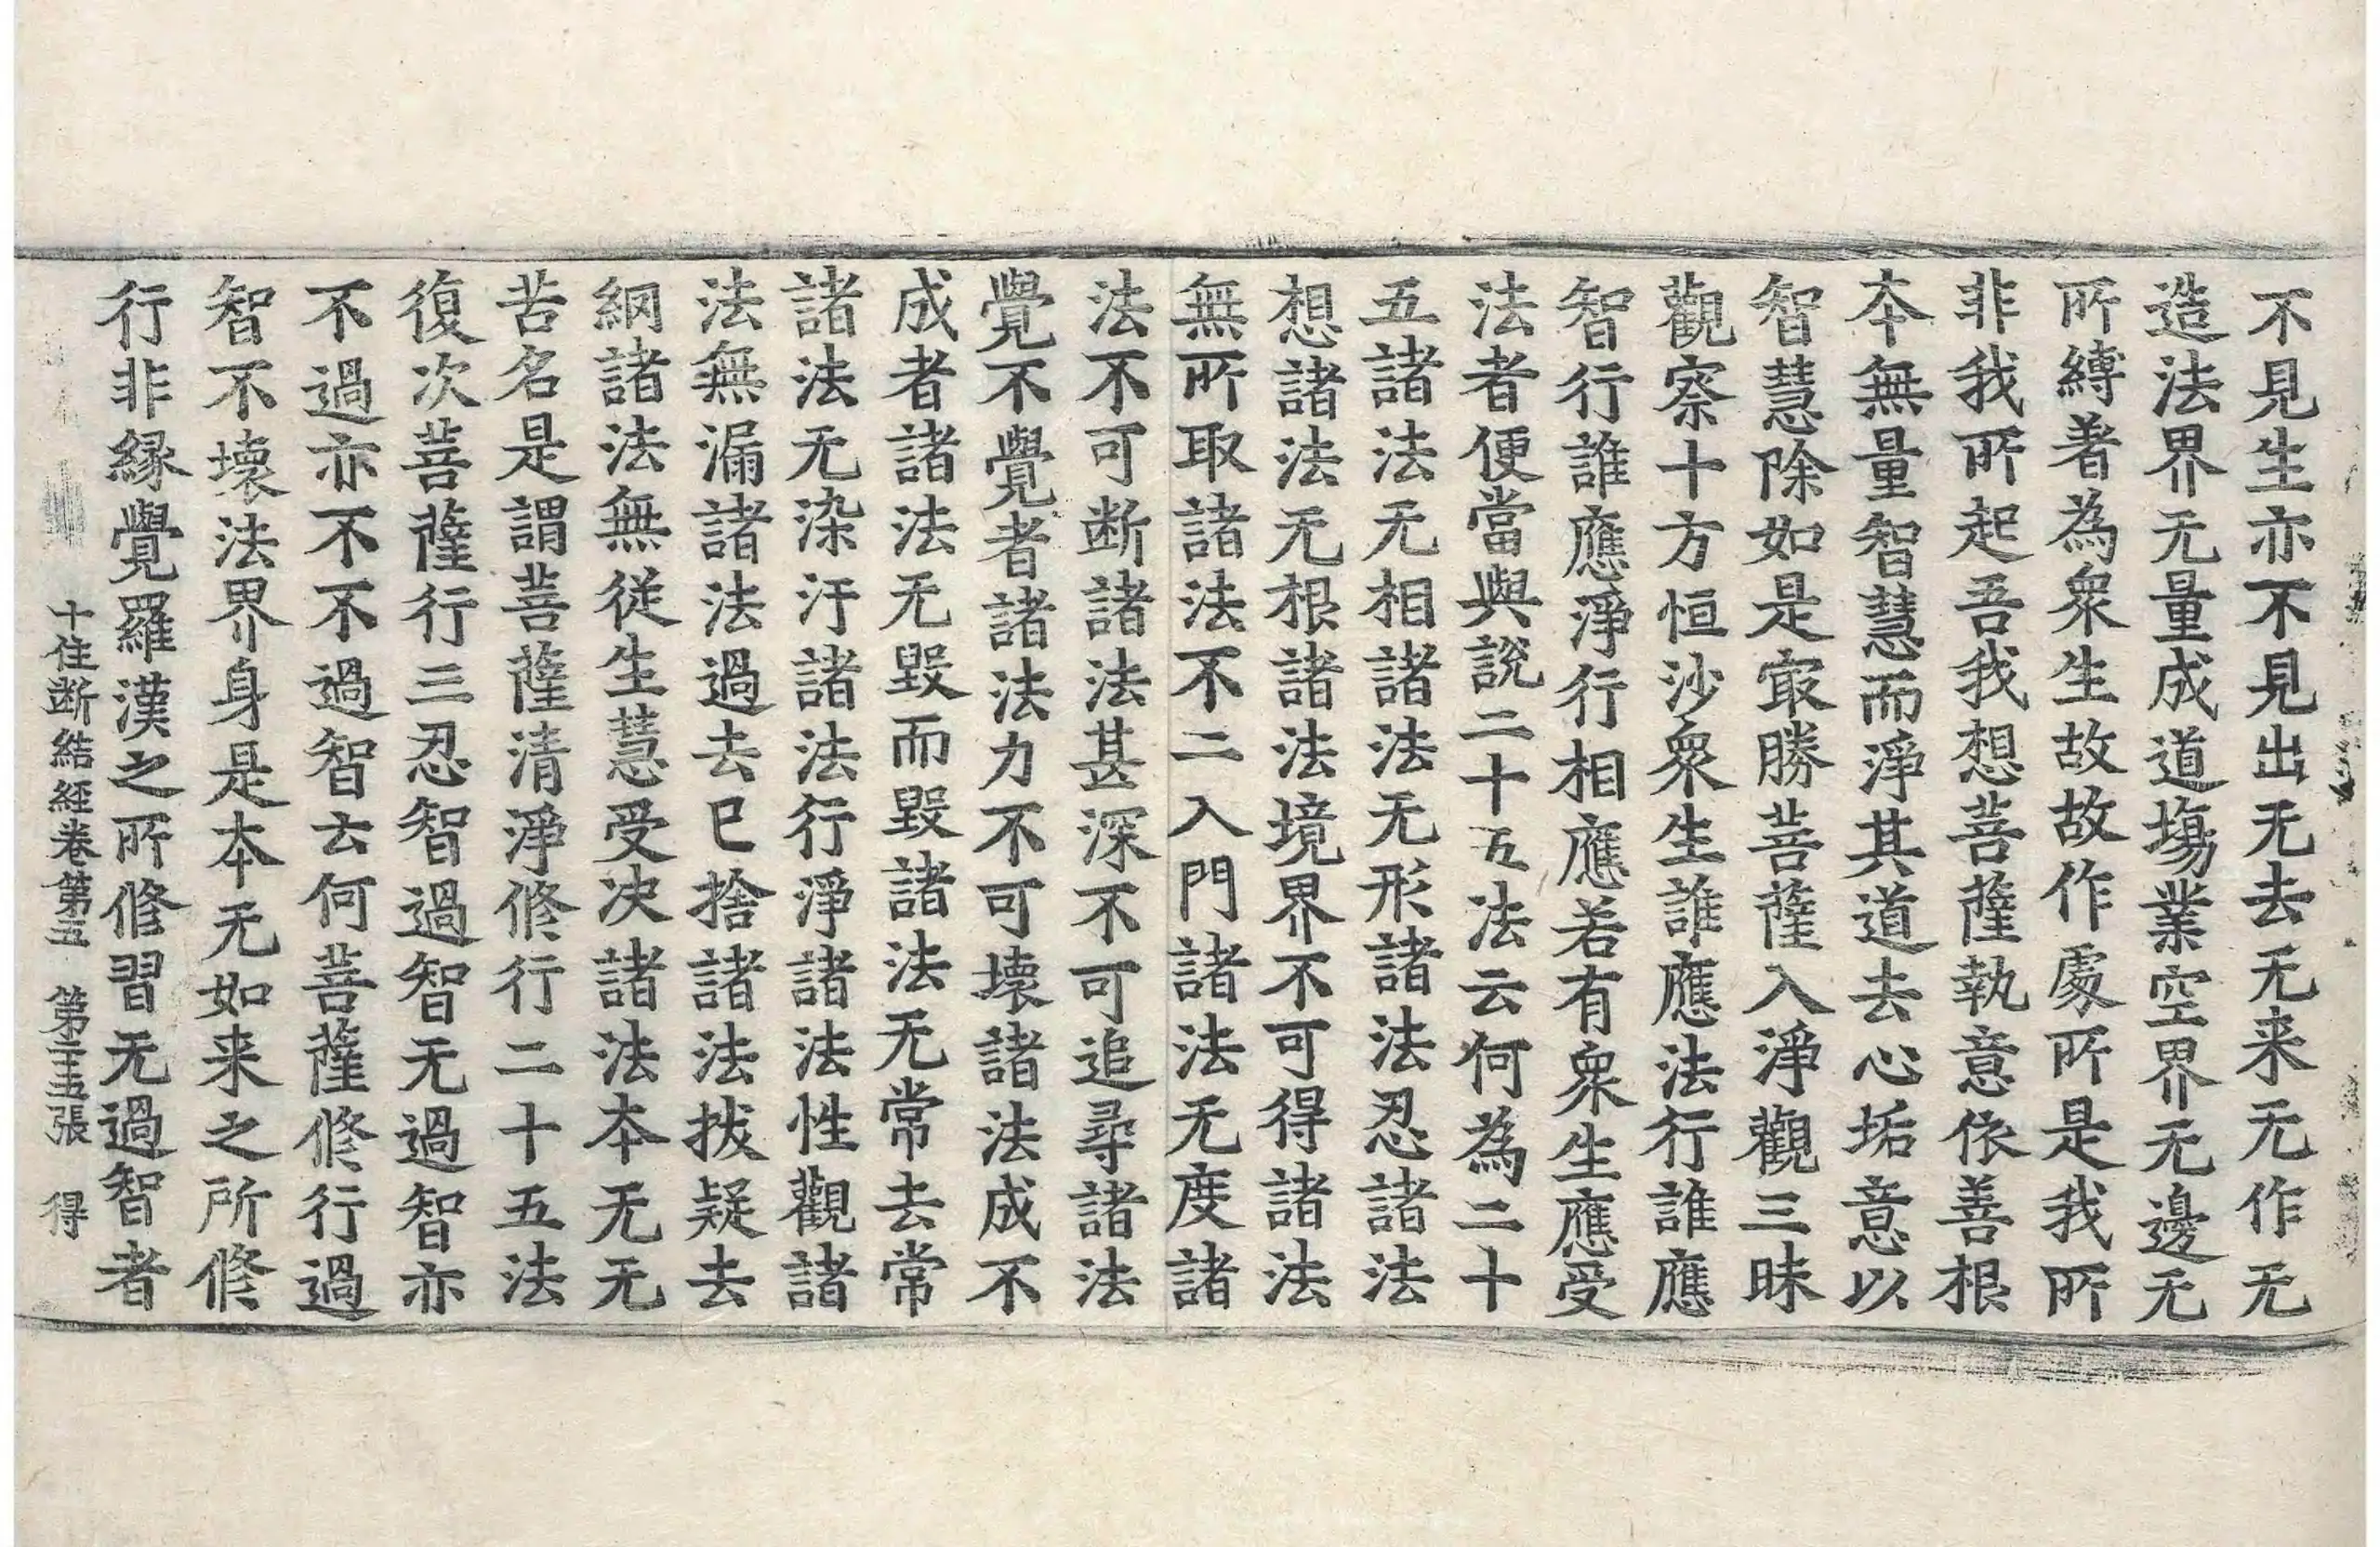 不見生亦不見出无去无来无作无
造法界无量成道塲業空界无邊无
所縛著為衆生故故作處所是我所
非我所起吾我想菩薩執意依善根
本無量智慧而淨其道去心垢意以
智慧除如是㝡勝菩薩入淨觀三昧
觀察十方恒沙衆生誰應法行誰應
智行誰應淨行相應若有衆生應受
法者便當與說二十五法云何為二十
五諸法无相諸法无形諸法忍諸法
想諸法无根諸法境界不可得諸法
無所取諸法不二入門諸法无度諸
法不可断諸法甚深不可追尋諸法
覺不覺者諸法力不可壊諸法成不
成者諸法无毀而毀諸法无常去常
諸法无染汙諸法行淨諸法性觀諸
法無漏諸法過去已捨諸法拔疑去
網諸法無従生慧受决諸法本无无
苦名是謂菩薩清淨修行二十五法
復次菩薩行三忍智過智无過智亦
不過亦不不過智云何菩薩修行過
智不壊法界身是本无如来之所修
行非縁覺羅漢之所修習无過智者
十住断結經卷第五 第二十五張 得